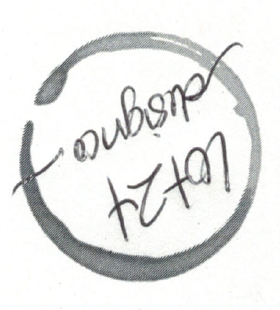 Lot24
designco